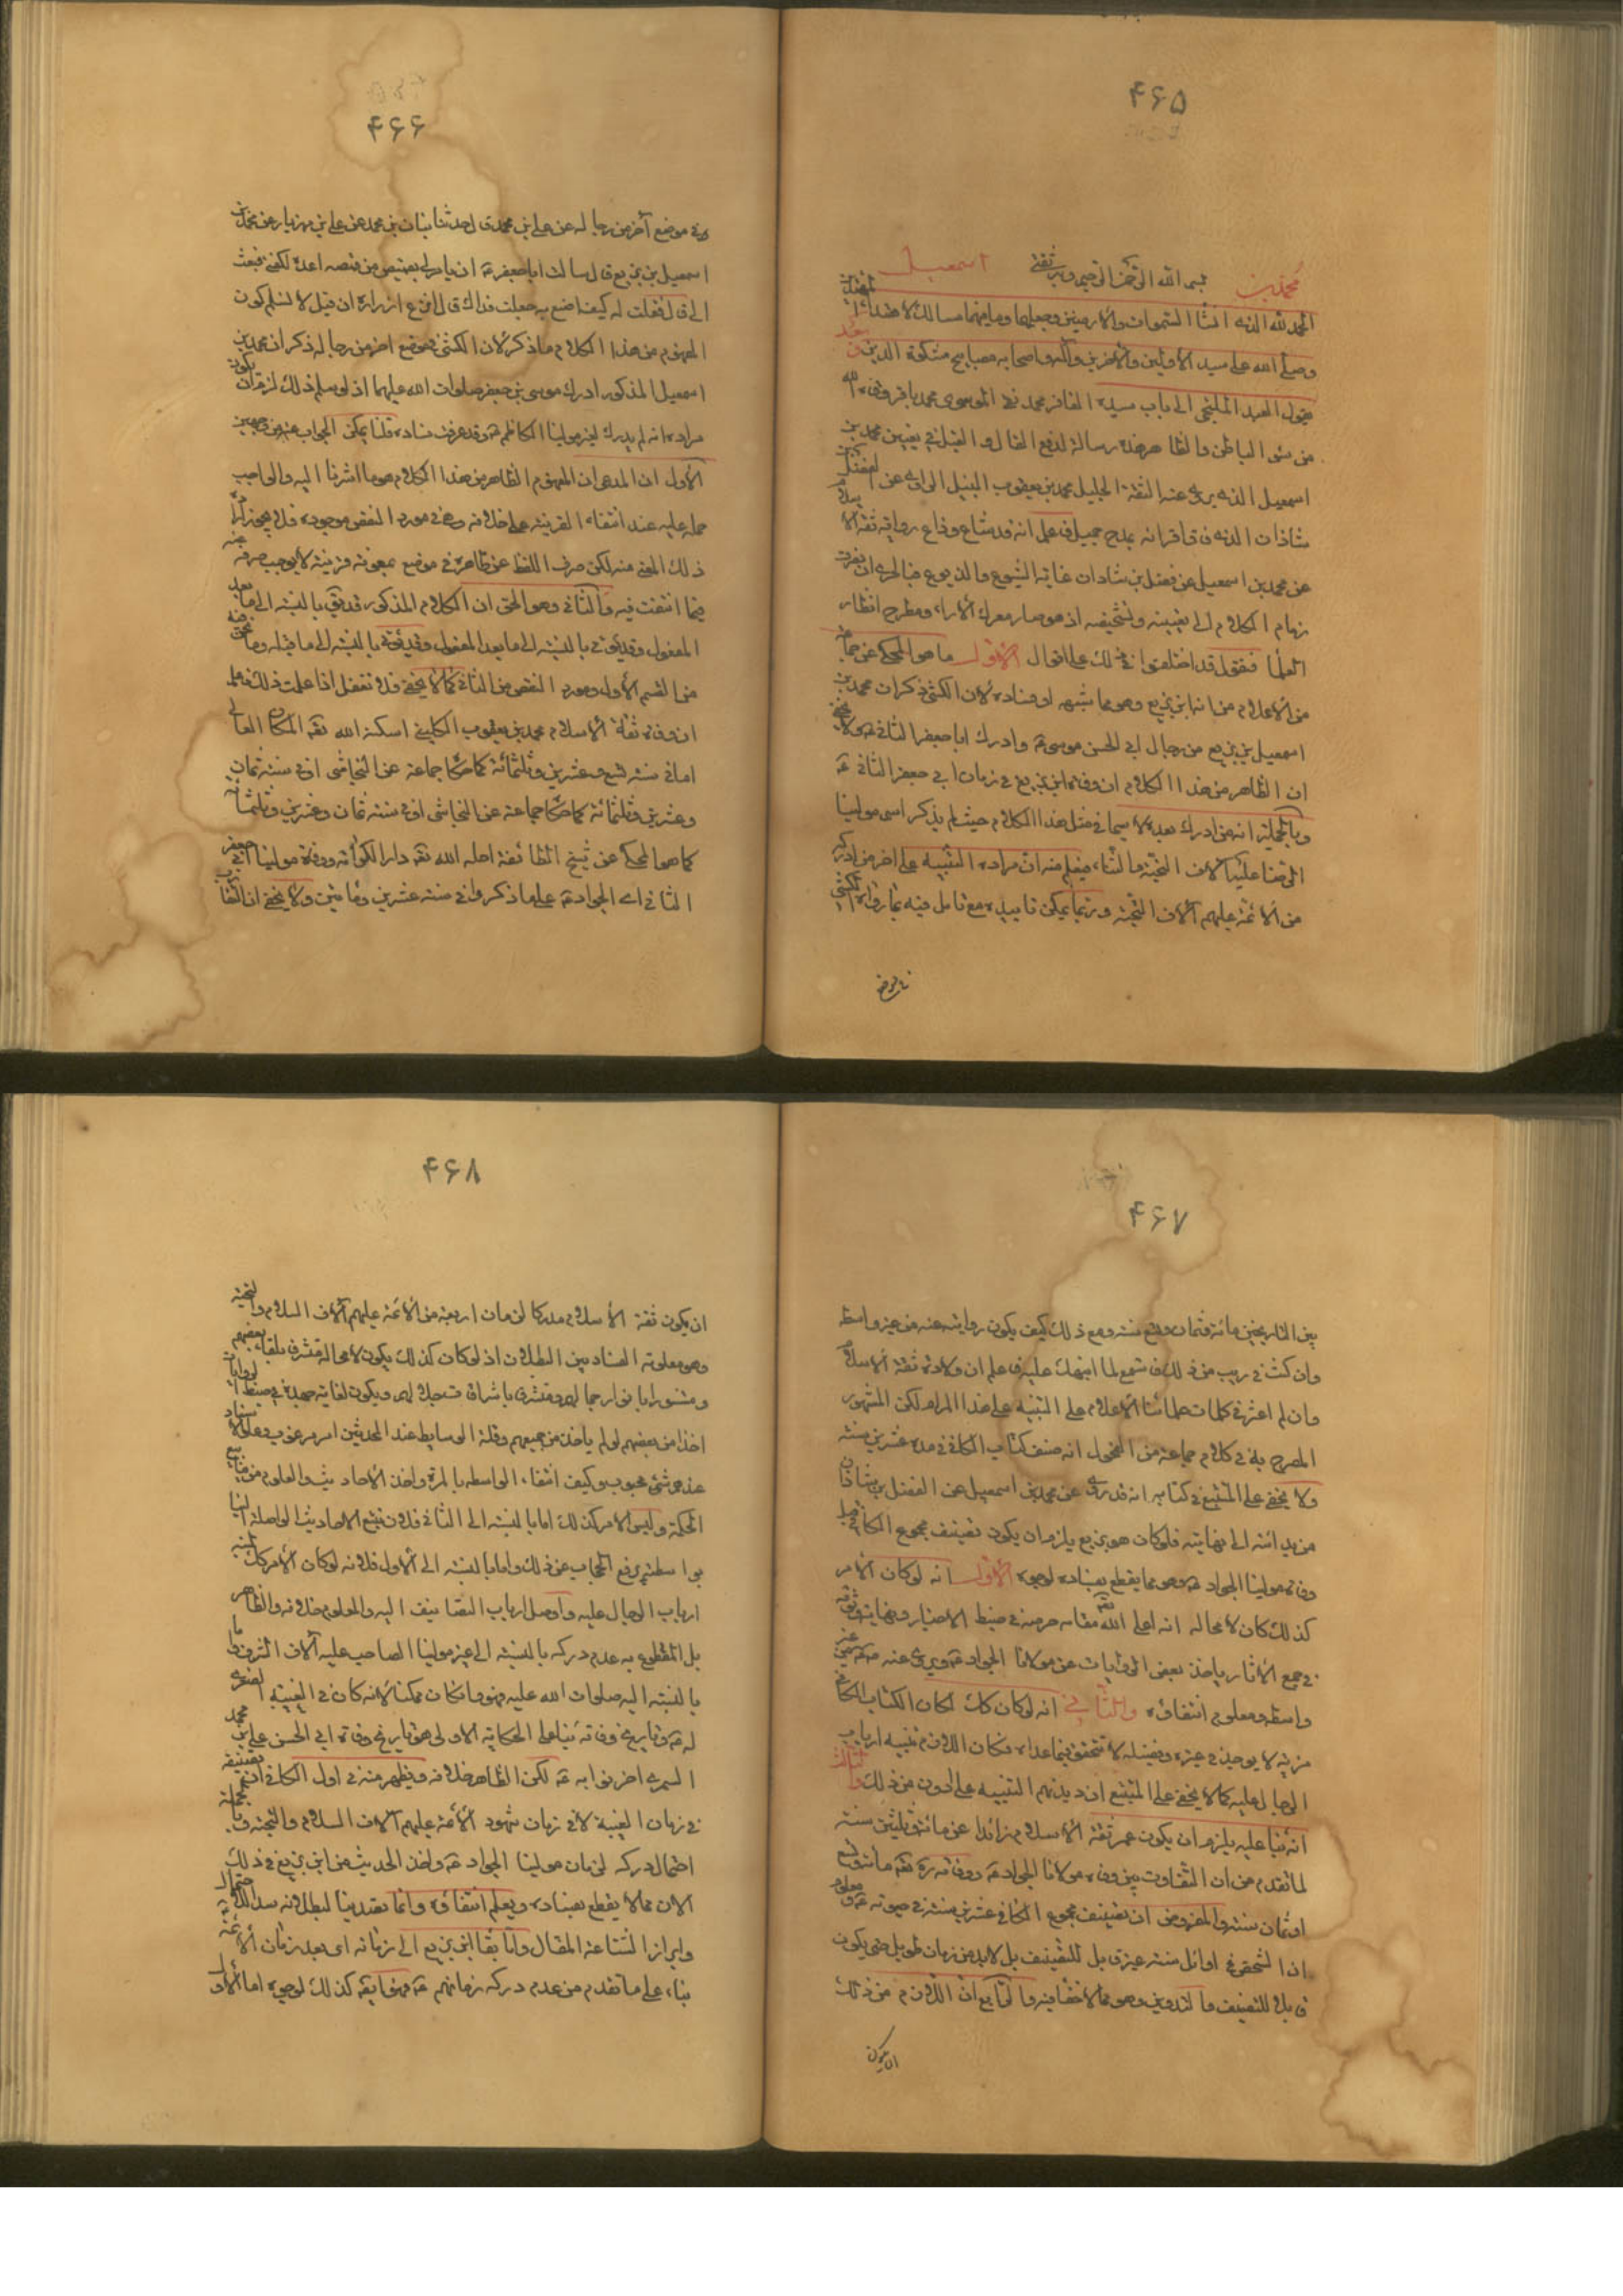 ۴۶۵
محمد بن اسمعيل
بسم الله الرحمن الرحيم وبه ثقتي
الحمد لله الذي انشأ السموات والارضين وجعلهما وما بينهما مسالك لاهتداء
وصلى الله على سيد الاولين والاخرين وآله واصحابه مصابيح مشكوة الدين وبعد
يقول العبد الملتجي الى باب سيده الغافر محمد نقي الموسوي محمد باقر وقي
من شر الباطن والظاهر هذه رسالة لدفع القال والقيل في تعيين محمد بن
اسمعيل الذي يروي عنه الثقة الجليل محمد بن يعقوب النبيل الراوي عن الفضل بن
شاذان الذي فاق اقرانه بمدح جميل فاعلم انه قد شاع وذاع رواية ثقة الاسلام
عن محمد بن اسمعيل عن فضل بن شاذان غاية الشيوع والذيوع فبالحري ان نصرف
زمام الكلام الى تعيينه وتشخيصه اذ هو صار معرك الاراء ومطرح انظار
العلماء فنقول قد اختلفوا في ذلك على اقوال الاول ما هو المحكي عن جماعة
من الاعلام من انه ابن بزيع وهو مما شبهه في فساده لان الكشي ذكر ان محمد بن
اسمعيل بن بزيع من رجال ابي الحسن موسى ع وادرك ابا جعفر الثاني ع ولا يخفى
ان الظاهر من هذا الكلام ان وفاة ابن بزيع في زمان ابي جعفر الثاني ع
وبالجملة انه من ادرك بعده لا سيما في مثل هذا الكلام حيث لم يذكر اسم مولينا
الرضا عليه آلاف التحية والثناء فيعلم منه ان مراده التنبيه على اخر من ادركه
من الائمة عليهم آلاف التحية وربما يمكن تاييده مع تامل فيه بما رواه الكشي
في موضع
۴۶۶
في موضع آخر من رجاله عن علي بن محمد قال حدثنا بنان بن محمد عن علي بن مهزيار عن محمد بن
اسمعيل بن بزيع قال سالت ابا جعفر ع ان يامر لي بقميص من قمصه اعده لكفني فبعث
الي قال فقلت له كيف اصنع به جعلت فداك قال انزع ازراره ان قيل لا نسلم كون
المفهوم من هذا الكلام ما ذكر لان الكشي في موضع اخر من رجاله ذكر ان محمد بن
اسمعيل المذكور ادرك موسى بن جعفر صلوات الله عليهما اذ لو سلم ذلك لزم ان يكون
مراده انه لم يدرك غير مولينا الكاظم ع وقد عرفت فساده قلنا يمكن الجواب عنه من وجهين
الاول ان المدعى ان المفهوم الظاهر من هذا الكلام هو ما اشرنا اليه والواجب
حمله عليه عند انتفاء القرينة على خلافه وهي في مورد النقض موجودة فلا يجوز
ذلك المعنى منه لكن صرف اللفظ عن ظاهره في موضع بمعونة قرينة لا يوجب صرفه عنه
فيما انتفت فيه والثاني وهو الحق ان الكلام المذكور قد يؤتى بالنسبة الى ما بعد
المفعول وقد يؤتى بالنسبة الى ما بعد المفعول وقد يؤتى بالنسبة الى ما قبله وما نحن فيه
من القسم الاول ومورد النقض من الثاني كما لا يخفى فلا تغفل اذا علمت ذلك فاعلم
ان وفاة ثقة الاسلام محمد بن يعقوب الكليني اسكنه الله تعه المكان العالي
اما في سنة تسع وعشرين وثلثمائة كما حكا جماعة عن النجاشي او في سنة ثمان
وعشرين وثلثمائة كما حكا جماعة عن النجاشي او في سنة ثمان وعشرين وثلثمائة
كما هو المحكي عن شيخ الطائفة احله الله تعه دار الكرامة ووفاة مولينا ابي جعفر
الثاني اي الجواد ع على ما ذكروا في سنة عشرين ومائتين ولا يخفى ان التفاوت
۴۶۷
بين التاريخين مائة وثمان وتسع سنة ومع ذلك كيف يكون روايته عنه من غير واسطة
وان كنت في ريب من ذلك فاستمع لما انبهك عليه فاعلم ان ولادة ثقة الاسلام
وان لم اعثر في كلمات علمائنا الاعلام على التنبيه على هذا المرام لكن المشهور
المصرح به في كلام جماعة من الفحول انه صنف كتاب الكافي في مدة عشرين سنة
ولا يخفى على المتتبع في كتابه انه قد روى عن محمد بن اسمعيل عن الفضل بن شاذان
من بدايته الى نهايته فلو كان هو بن بزيع يلزم ان يكون تصنيف مجموع الكافي قبل
وفاة مولينا الجواد ع وهو مما يقطع بفساده لوجوه الاول انه لو كان الامر
كذلك كان لا محالة انه اعلى الله تعه مقامه حرصه في ضبط الاخبار ونهاية شوقه
في جمع الاثار ياخذ بعض الروايات عن مولانا الجواد ع ويروي عنه من غير
واسطة ومعلوم انتفاؤه والثاني انه لو كان كذلك لكان لكتاب الكافي
مزية لا يوجد في غيره وفضيلة لا تتحقق فيما عداه فكان اللازم تنبيه ارباب
الرجال عليه كما لا يخفى على المتتبع ان ديدنهم التنبيه على ادون من ذلك والثالث
انه بنا عليه يلزم ان يكون عمر ثقة الاسلام زائدا عن مائة وثلثين سنة
لما تقدم من ان التفاوت بين وفاة مولانا الجواد ع ووفاته ره تعه مائة وتسع
او ثمان سنة والمفروض ان تصنيف مجموع الكافي في عشرين سنة في حيوته ع ومعلوم
ان الشخص في اوائل سنه غير قابل للتصنيف بل لا بد من زمان طويل حتى يكون
قابلا للتصنيف والتدوين وهو مما لا خفاء فيه والرابع ان اللازم من ذلك
ان يكون
۴۶۸
ان يكون ثقة الاسلام مدركا لزمان اربعة من الائمة عليهم آلاف السلام والتحية
وهو معلوم الفساد بين البطلان اذ لو كان كذلك يكون لا محالة مشرفا بلقاء بعضهم
ومتنورا بانوار جمالهم ومشرقا باشراقات جلالهم ويكون لغاية جهده في ضبط الروايات
اخذا من بعضهم لو لم ياخذ من جميعهم وقلة الوسايط عند المحدثين امر مرغوب وعلو الاسناد
عندهم شيء محبوب وكيف انتفاء الواسطة بالمرة واخذ الاحاديث والعلوم من منابع
الحكمة وليس الامر كذلك اما بالنسبة الى الثاني فلان تتبع الاحاديث الواصلة الينا
بواسطته يرفع الحجاب عن ذلك واما بالنسبة الى الاول فلانه لو كان الامر كذلك لنبه
ارباب الرجال عليه واوصل ارباب التصانيف اليه والمعلوم خلافه والظاهر
بل المقطوع به عدم دركه بالنسبة الى غير مولينا الصاحب عليه آلاف الشرف واما
بالنسبة اليه صلوات الله عليه فهو وان كان ممكنا لانه كان في الغيبة الصغرى
له ع وتاريخ وفاته بنا على الحكاية الاولى هو تاريخ وفاة ابي الحسن علي بن محمد
السمري اخر نوابه ع لكن الظاهر خلافه ويظهر منه في اول الكافي ان تصنيفه
في زمان الغيبة لا في زمان شهود الائمة عليهم آلاف السلام والتحية وبالجملة
احتمال دركه لزمان مولينا الجواد ع واخذ الحديث من ابن بزيع في ذلك
الان مما لا يقطع بفساده ويعلم انتفاؤه وانما تصدينا لبطلانه سدا للاحتمال
وابرازا لشناعة المقال واما بقاء ابن بزيع الى زمانه اي بعد زمان الائمة
بناء على ما تقدم من عدم دركه زمانهم ع فهو ايضه كذلك لوجوه اما الاول